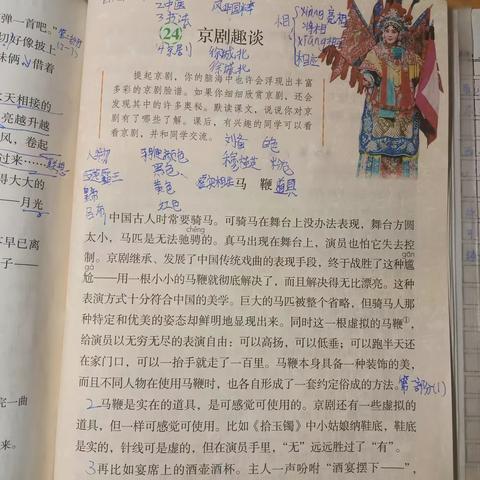 弹一首吧。”
切好像披上
妹俩,借着
天相接的
亮越升越
风,卷起
过来……
得大大的
月光
早已离
子——
完一曲
来。
2.中国
3.书法
4.京剧
相
xiàng 亮相
24 京剧趣谈
提起京剧,你的脑海中也许会浮现出丰富
多彩的京剧脸谱。如果你细细欣赏京剧,还会
发现其中的许多奥秘。默读课文,说说你对京
剧有了哪些了解。课后,有兴趣的同学可以看
看京剧,并和同学交流。
人物
黑色
黄色
红色
刘备 白色
穆桂英
马 鞭 道具
中国古人时常要骑马。可骑马在舞台上没办法表现,舞台方圆
chěng
太小,马匹是无法驰骋的。真马出现在舞台上,演员也怕它失去控
制。京剧继承、发展了中国传统戏曲的表现手段,终于战胜了这种尴
gān
gà
尬——用一根小小的马鞭就彻底解决了,而且解决得无比漂亮。这种
表演方式十分符合中国的美学。巨大的马匹被整个省略,但骑马人那
种特定和优美的姿态却鲜明地显现出来。同时这一根虚拟的马鞭①,
给演员以无穷无尽的表演自由:可以高扬,可以低垂;可以跑半天还
在家门口,可以一抬手就走了一百里。马鞭本身具备一种装饰的美,
而且不同人物在使用马鞭时,也各自形成了一套约定俗成的方法。第一部分(1)
2马鞭是实在的道具,是可感觉可使用的。京剧还有一些虚拟的
道具,但一样可感觉可使用。比如《拾玉镯》中小姑娘纳鞋底,鞋底
是实的,针线可是虚的,但在演员手里,“无”远远胜过了“有”。
3再比如宴席上的酒壶酒杯。主人一声吩咐“酒宴摆下——”,